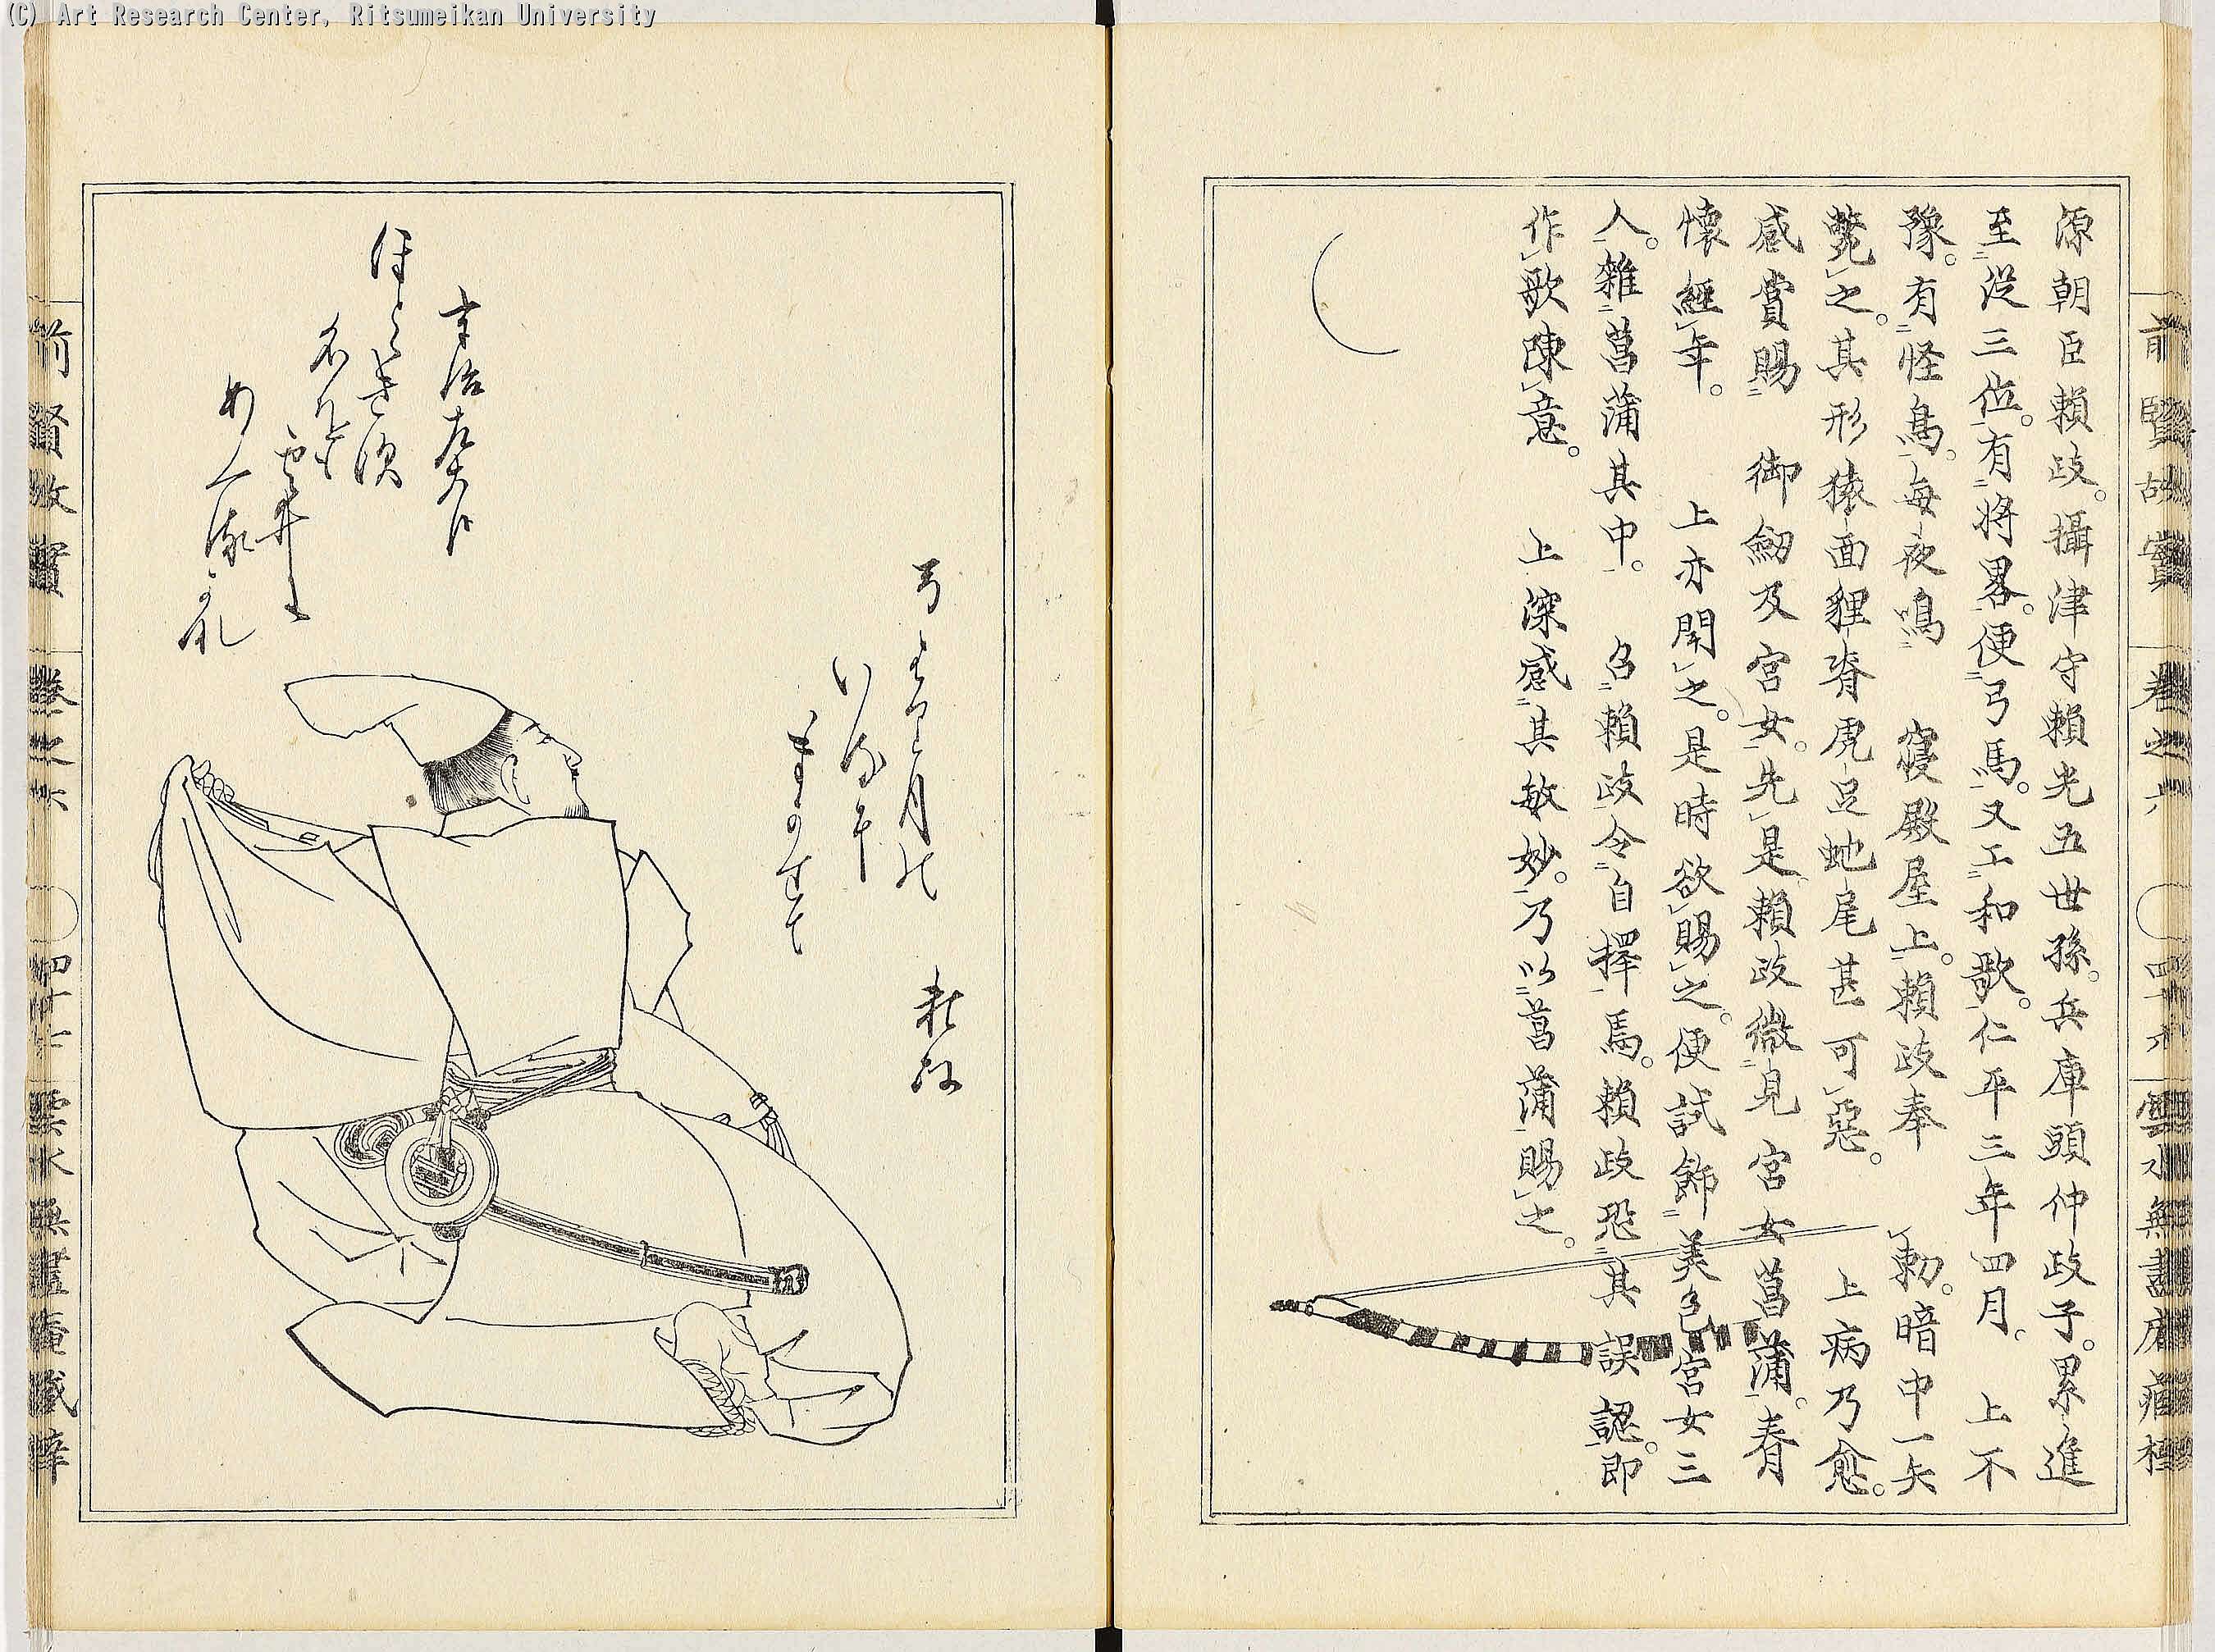 前賢故實 卷之六 四十六 雲水無盡庵藏梓
源朝臣賴政。攝津守賴光五世孫。兵庫頭仲政子。累進
至從三位。有将畧。便弓馬。又工和歌。仁平三年四月。上不
豫。有怪鳥。每夜鳴 寢殿屋上。賴政奉 勅。暗中一矢
斃之。其形猿面貍脊虎足虵尾甚可惡。 上病乃愈。
感賞賜 御劒及宮女。先是賴政微見宮女菖蒲。春
懷經年。 上亦聞之。是時欲賜之。便試飾美色宮女三
人。雜菖蒲其中。 召賴政令自擇焉。賴政恐其誤認。即
作歌陳意。 上深感其敏妙。乃以菖蒲賜之。
頼政
弓はり月の
いるに
まかせて
宇治左大臣
ほとゝきす
名をも
雲井に
あくるかな
前賢故實 卷之六 四十七 雲水無盡庵藏梓
(C) Art Research Center, Ritsumeikan University